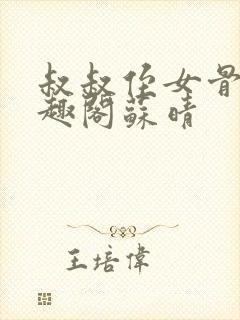 叔叔侄女骨
趣閣蘇晴
王培偉